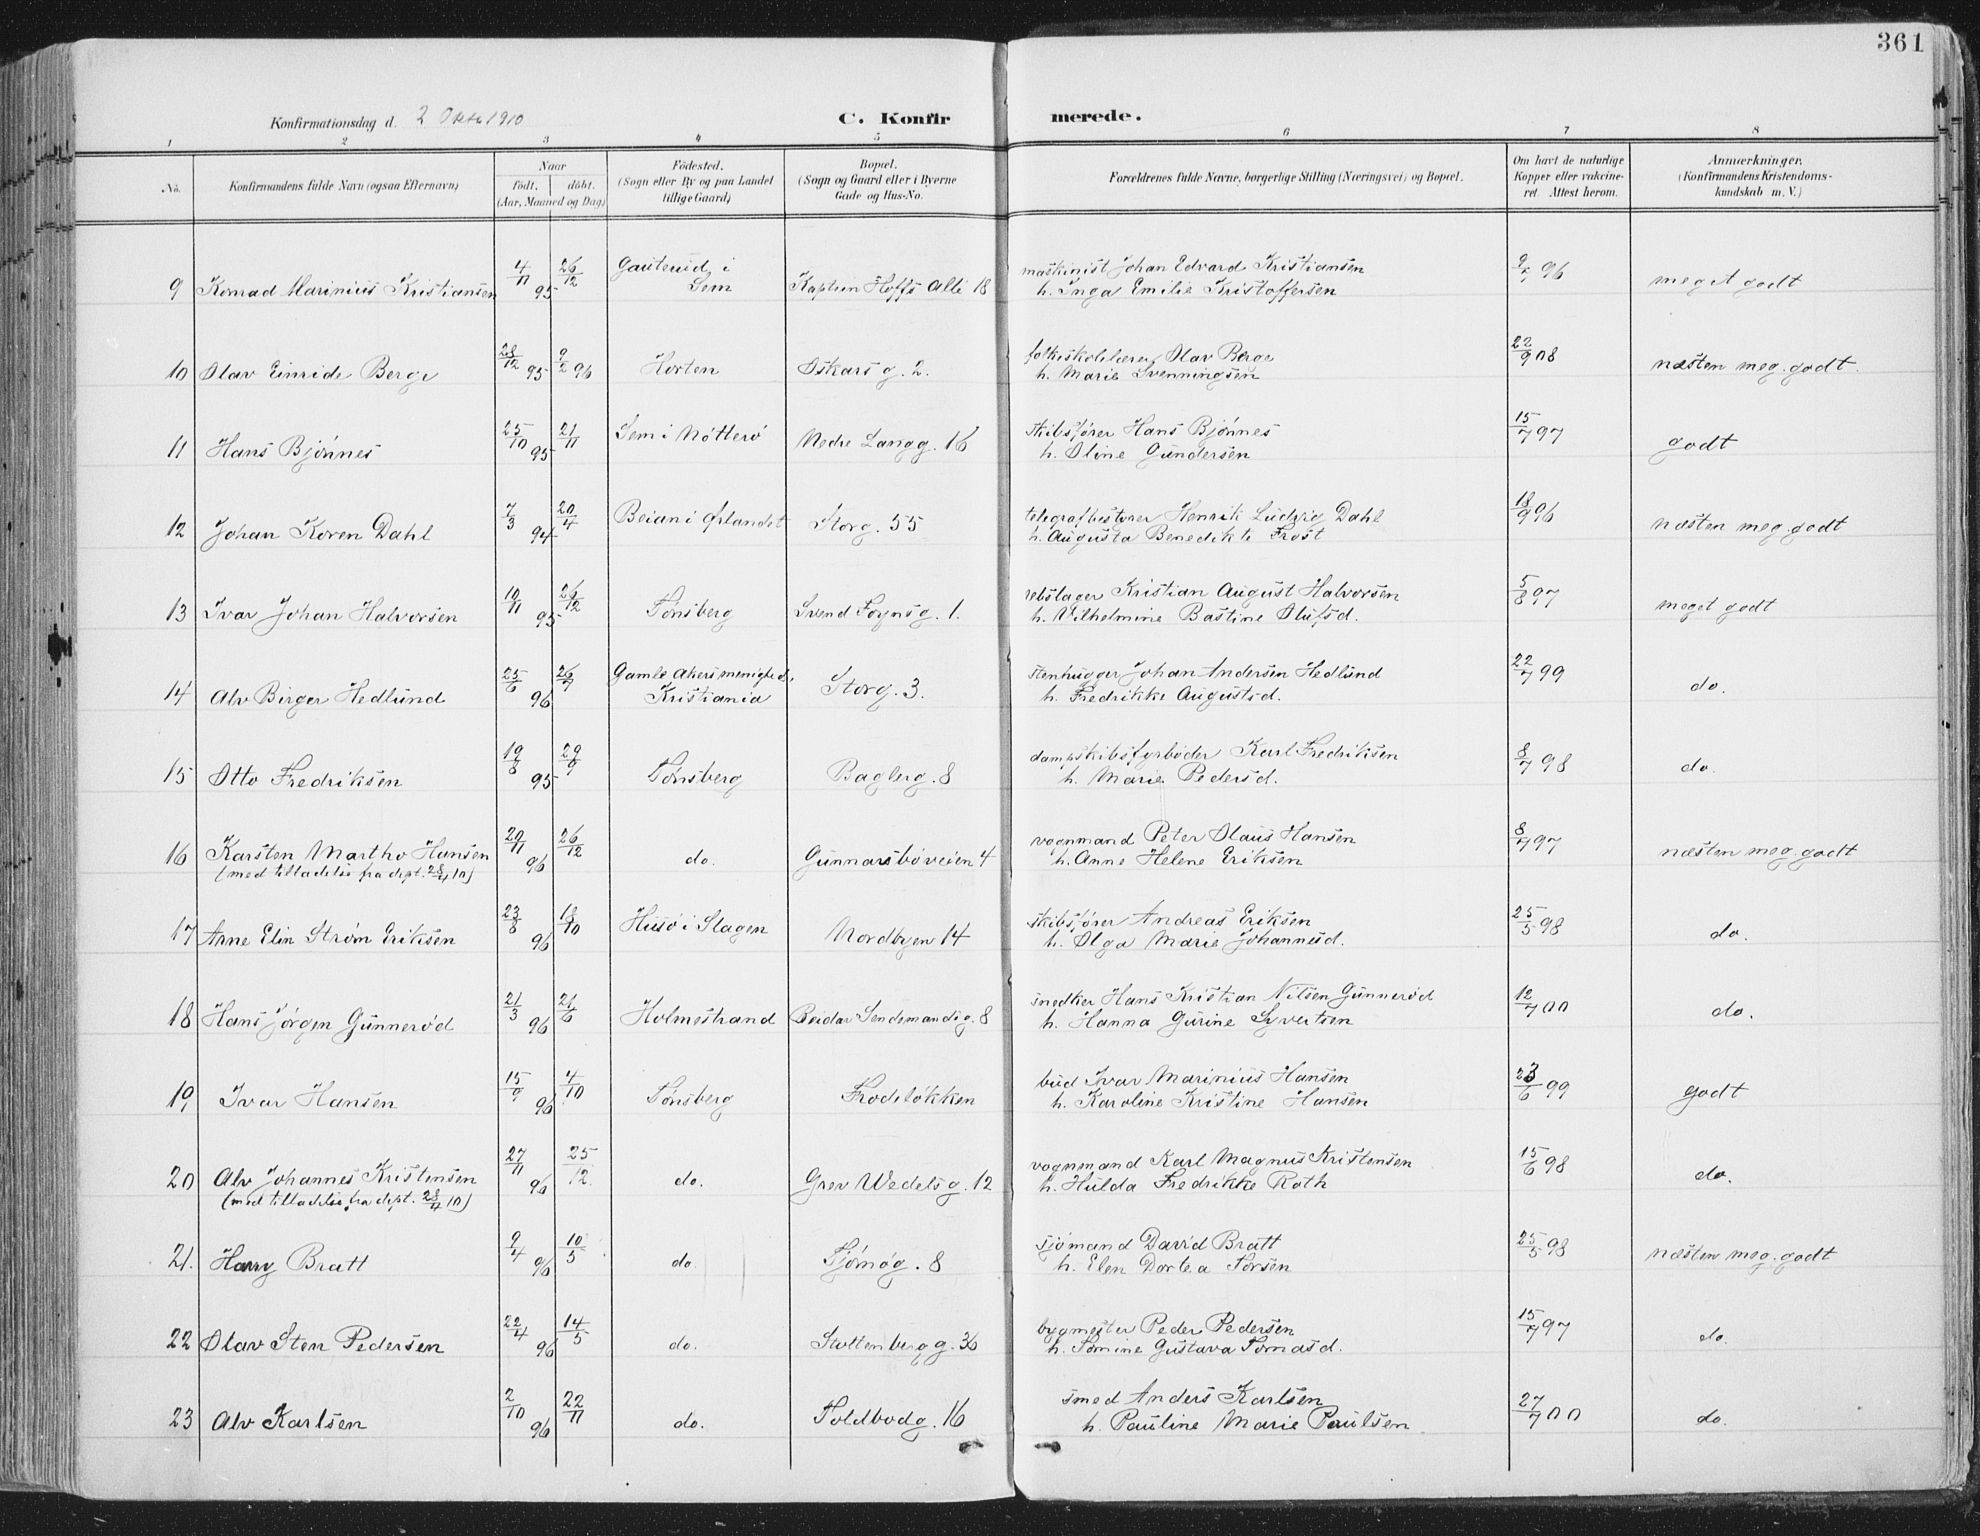 361
Konfirmationsdag d. 2 Oktr 1910
C. Konfirmerede.
1 2 3 4 5 6 7 8
No. | Konfirmandens fulde Navn (ogsaa Efternavn) | Naar født. døbt. (Aar, Maaned og Dag) | Fødested. (Sogn eller By og paa Landet tillige Gaard) | Bopæl. (Sogn og Gaard eller i Byerne Gade og Hus-No. | Forældrenes fulde Navne, borgerlige Stilling (Næringsvei) og Bopæl. | Om havt de naturlige Kopper eller vakcineret. Attest herom. | Anmærkninger. (Konfirmandens Kristendomskundskab m. V.)
9 Konrad Marinius Kristiansen 4/11 95 26/12 Gauterud i Sem Kaptein Hoffs Allé 18 maskinist Johan Edvard Kristiansen 9/7 96 meget godt
h. Inga Emilie Kristoffersen
10 Olav Einride Berge 28/12 95 9/2 96 Horten Oskars g. 2. folkeskolelærer Olav Berge 22/9 08 næsten meg. godt.
h. Marie Svenningsen
11 Hans Bjönnes 25/10 95 21/11 Sem i Nötterö Nedre Langg. 16 skibsfører Hans Bjønnes 15/7 97 godt
h. Oline Gundersen
12 Johan Koren Dahl 7/3 94 20/4 Beian i Ørlandet Storg. 55 telegrafbestyrer Henrik Ludvig Dahl 18/9 96 næsten meg. godt
h. Augusta Benedikte Frost
13 Ivar Johan Halvorsen 10/11 95 26/12 Tønsberg Svend Foynsg. 1. rebslager Kristian August Halvorsen 5/8 97 meget godt
h. Vilhelmine Bastine Olufsd.
14 Alv Birger Hedlund 25/6 96 26/7 Gamle Akers menighed, Kristiania Storg. 3. stenhugger Johan Andersen Hedlund 22/7 99 do.
h. Fredrikke Augustsd.
15 Otto Fredriksen 19/8 95 29/9 Tønsberg Baglerg. 8 dampskibsfyrbøder Karl Fredriksen 8/7 98 do.
h. Marie Pedersd.
16 Karsten Martho Hansen 20/11 96 26/12 do. Gunnarsbøveien 4 vognmand Peter Olaus Hansen 8/7 97 næsten meg. godt
(med tilladelse fra dept. 28/4 10) h. Anne Helene Eriksen
17 Arne Elin Strøm Eriksen 23/8 96 18/10 Husö i Slagen Nordbyen 14 skibsfører Andreas Eriksen 25/5 98 do.
h. Olga Marie Johannesd.
18 Hans Jørgen Gunnerød 21/3 96 21/6 Holmestrand Reidar Sendemandsg. 8 snedker Hans Kristian Nilsen Gunnerød 12/7 00 do.
h. Hanna Gurine Syvertsen
19 Ivar Hansen 15/9 96 4/10 Tønsberg Frodeløkken bud Ivar Marinius Hansen 23/6 99 godt
h. Karoline Kristine Hansen
20 Alv Johannes Kristensen 27/11 96 25/12. do. Grev Wedelsg. 12 vognmand Karl Magnus Kristensen 15/6 98 do.
(med tilladelse fra dept. 28/4 10) h. Hulda Fredrikke Roth
21. Harry Bratt 9/4 96 10/5 do. Tjømøg. 8 sjømand David Bratt 25/5 98 næsten meg. godt
h. Elen Dortea Torsen
22 Olav Sten Pedersen 22/4 96 14/5 do. Stoltenbergg. 36 bygmester Peder Pedersen 15/7 97 do.
h. Tomine Gustava Tomasd.
23 Alv Karlsen 2/10 96 22/11 do. Toldbodg. 16 smed Anders Karlsen 27/7 00 do.
h. Pauline Marie Paulsen